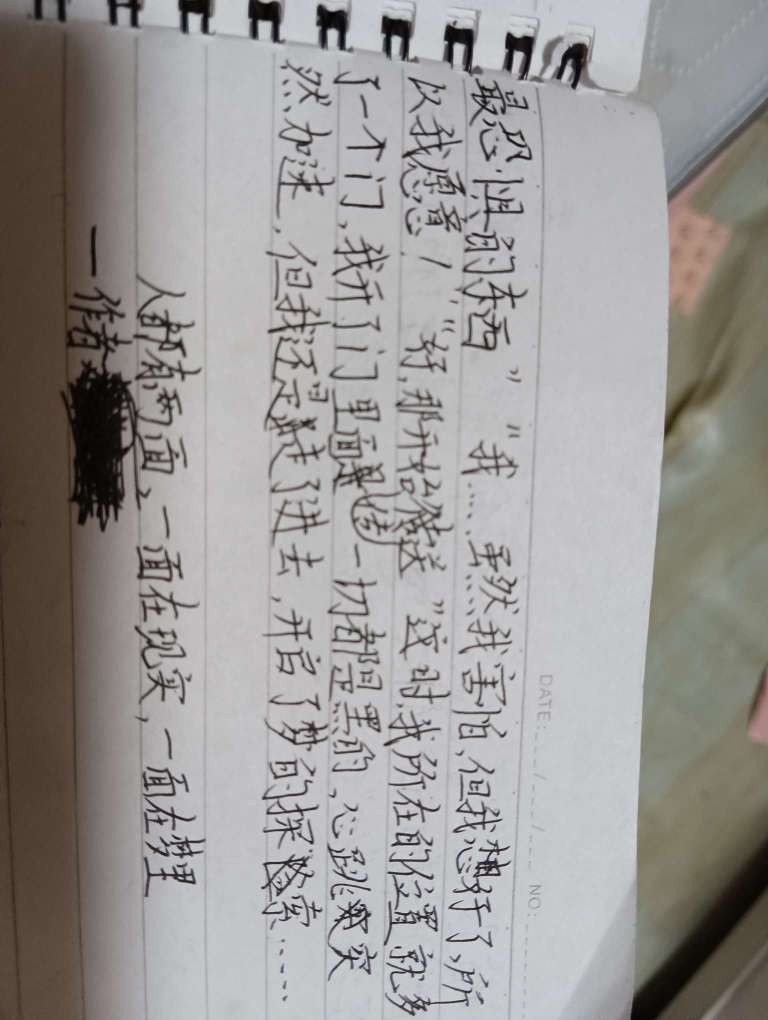 DATE:___/___/___ NO:______
最恐惧的东西”“我……虽然我害怕,但我想好了,所
以我愿意!”“好,那开始传送”这时,我所在的位置就多
了一个门,我开了门里面是一切都是黑的,心跳突
然加速,但我还是走了进去,开启了梦的探索……
人都有两面,一面在现实,一面在梦里
—作者